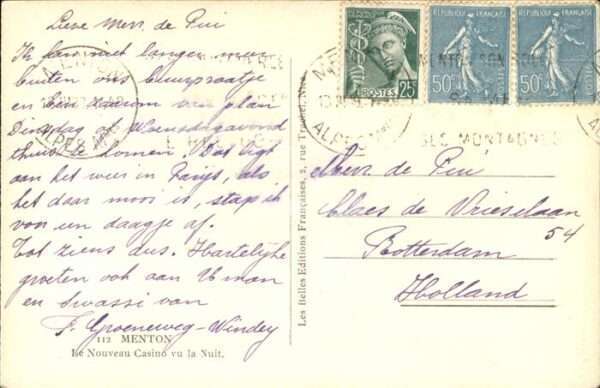 Lieve Mevr. de Pui
Ik kan niet langer meer
buiten ons buurpraatje
en ben daarom van plan
Dinsdag of Woensdagavond
thuis te komen. Dat ligt
aan het weer in Parijs, als
het daar mooi is, stap ik
voor een daagje af.
Tot ziens dus. Hartelijke
groeten ook aan Uw man
en Swassi van
F. Groeneweg-Windey
112 MENTON
Le Nouveau Casino vu la Nuit.
Les Belles Editions Françaises, 2, rue
POSTES 25
RÉPUBLIQUE FRANÇAISE
50c
RÉPUBLIQUE FRANÇAISE
50c
MENTON SON
SES MONTAGNES
Mevr. de Pui
Claes de Vrieselaan
54
Rotterdam
Holland